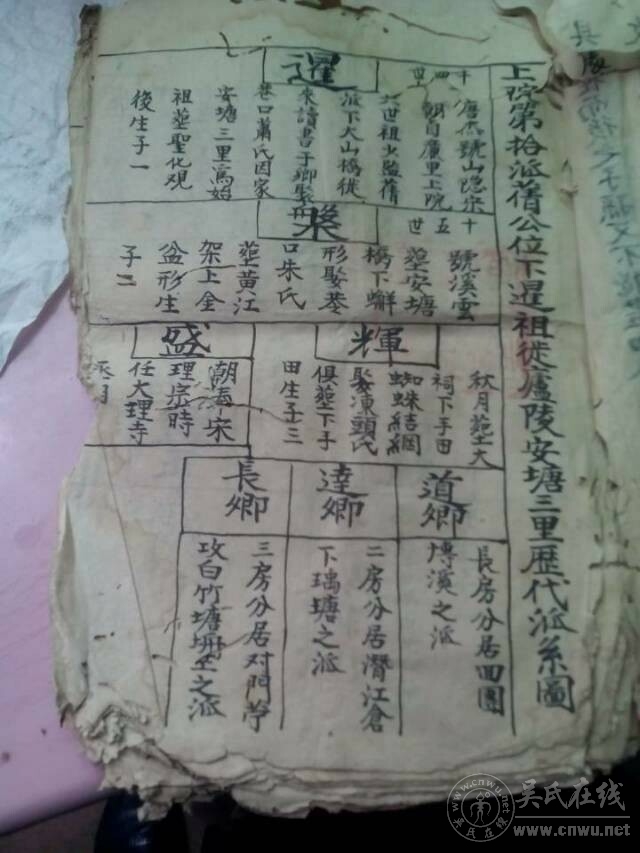 上院第拾派蒨公位下暹祖從廬陵安塘三里歷代派系圖
暹
十四世
唐
號山隐宋
朝自廣里上院
六世祖火
蒨
派下大山橋徙
來讀書于鄉娶
巷口蕭氏因家
安塘三里爲始
祖塟聖化观
後生子一
桀
十五世
號溪雲
塟安塘
橋下蠏
形娶巷
口朱氏
塟黄江
架上金
盆形生
子二
輝
秋月塟大
祠下手田
蜘蛛結網
娶凍頭氏
俱塟下手
田生子三
盛
朝
宋
理宗時
任大理寺
道卿
長房分居
團
溪之派
達卿
二房分居潛江倉
下瑀塘之派
長卿
三房分居对門
攻白竹塘
之派
吴氏在线
www.cnwu.net